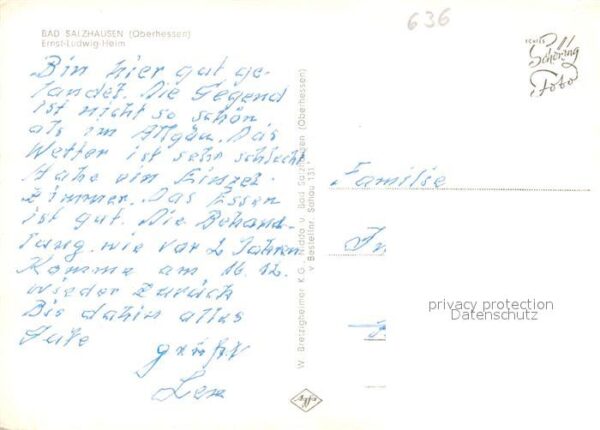 BAD SALZHAUSEN (Oberhessen)
Ernst-Ludwig-Heim
636
Bin hier gut ge-
landet. Die Gegend
ist nicht so schön
als im Allgäu. Das
Wetter ist sehr schlecht
Habe ein Einzel-
zimmer. Das Essen
ist gut. Die Behand-
lung wie vor 2 Jahren
Komme am 16.12.
wieder zurück
Bis dahin alles
Gute
grüßt
W. Bretzigheimer K.G., Nidda u. Bad Salzhausen (Oberhessen)
v Bestellnr. Sahau 131
Agfa
ECHTES
Schöning
Foto
Familie
privacy protection
Datenschutz